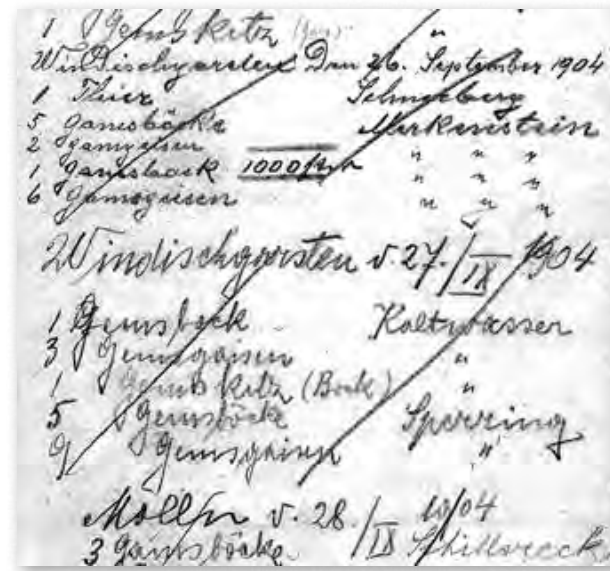 1 Gemskitz "
Windischgarsten Den 26. September 1904
1 Thier Schneeberg
5 Gamsböcke Merkenstein
2 Gamsgeisen " " "
1 Gamsbock 1000 " " "
6 Gamsgeisen " " "
Windischgarsten v. 27./IX 1904
1 Gemsbock Kaltwasser
3 Gemsgaisen "
1 Gemskitz (Bock) "
5 Gemsböcke Sperring
9 Gemsgaisen "
Molln v. 28./IX
3 Gamsböcke